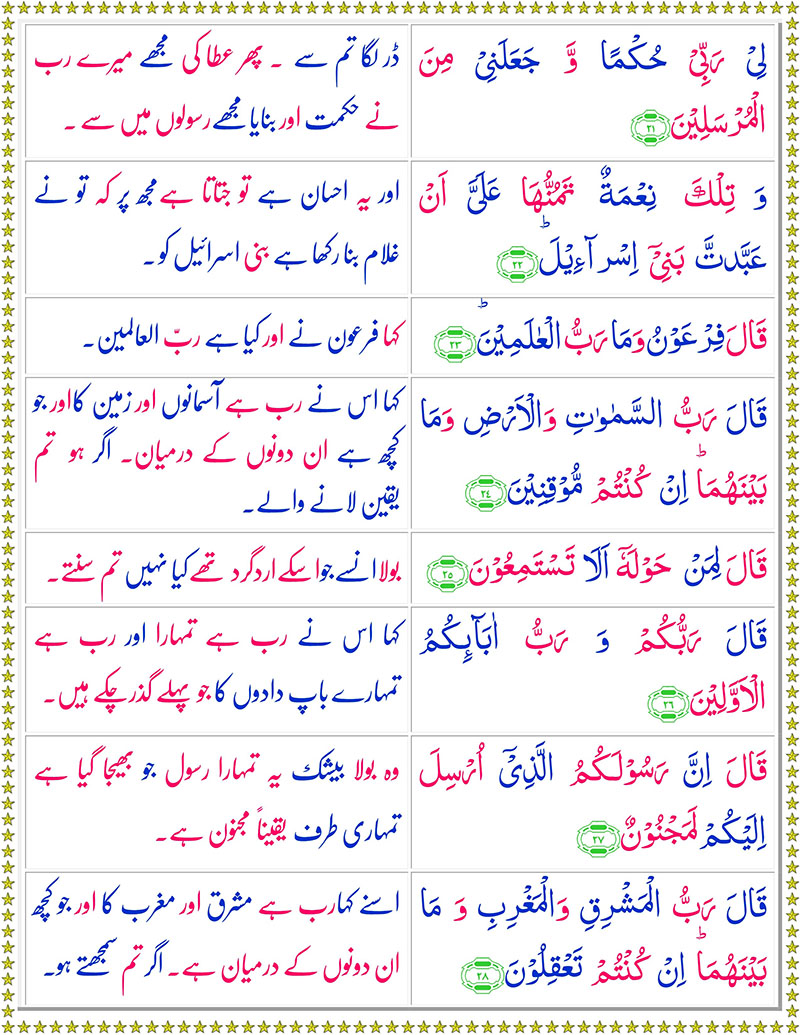 لِیْ رَبِّیْ حُكْمًا وَّ جَعَلَنِیْ مِنَ
الْمُرْسَلِیْنَ ﴿۲۱﴾
ڈر لگا تم سے ۔ پھر عطا کی مجھے میرے رب
نے حکمت اور بنایا مجھے رسولوں میں سے ۔
وَ تِلْكَ نِعْمَةٌ تَمُنُّهَا عَلَیَّ اَنْ
عَبَّدتَّ بَنِیْۤ اِسْرآءِیْلَؕ ﴿۲۲﴾
اور یہ احسان ہے تو جتاتا ہے مجھ پر کہ تو نے
غلام بنا رکھا ہے بنی اسرائیل کو۔
قَالَ فِرْعَوْنُ وَمَا رَبُّ الْعٰلَمِیْنَؕ ﴿۲۳﴾
کہا فرعون نے اور کیا ہے ربّ العالمین۔
قَالَ رَبُّ السَّمٰوٰتِ وَالْاَرْضِ وَمَا
بَیْنَهُمَاؕ اِنْ كُنْتُمْ مُّوْقِنِیْنَ ﴿۲۴﴾
کہا اس نے رب ہے آسمانوں اور زمین کا اور جو
کچھ ہے ان دونوں کے درمیان۔ اگر ہو تم
یقین لانے والے۔
قَالَ لِمَنْ حَوْلَهٗۤ اَلَا تَسْتَمِعُوْنَ ﴿۲۵﴾
بولا انسے جو اسکے اردگرد تھے کیا نہیں تم سنتے۔
قَالَ رَبُّكُمْ وَ رَبُّ اٰبَآىِٕكُمُ
الْاَوَّلِیْنَ ﴿۲۶﴾
کہا اس نے رب ہے تمہارا اور رب ہے
تمہارے باپ دادوں کا جو پہلے گذر چکے ہیں۔
قَالَ اِنَّ رَسُوْلَكُمُ الَّذِیْۤ اُرْسِلَ
اِلَیْكُمْ لَمَجْنُوْنٌ ﴿۲۷﴾
وہ بولا بیشک یہ تمہارا رسول جو بھیجا گیا ہے
تمہاری طرف یقیناً مجنون ہے۔
قَالَ رَبُّ الْمَشْرِقِ وَالْمَغْرِبِ وَ مَا
بَیْنَهُمَاؕ اِنْ كُنْتُمْ تَعْقِلُوْنَ ﴿۲۸﴾
اسنے کہا رب ہے مشرق اور مغرب کا اور جو کچھ
ان دونوں کے درمیان ہے۔ اگر تم سمجھتے ہو۔